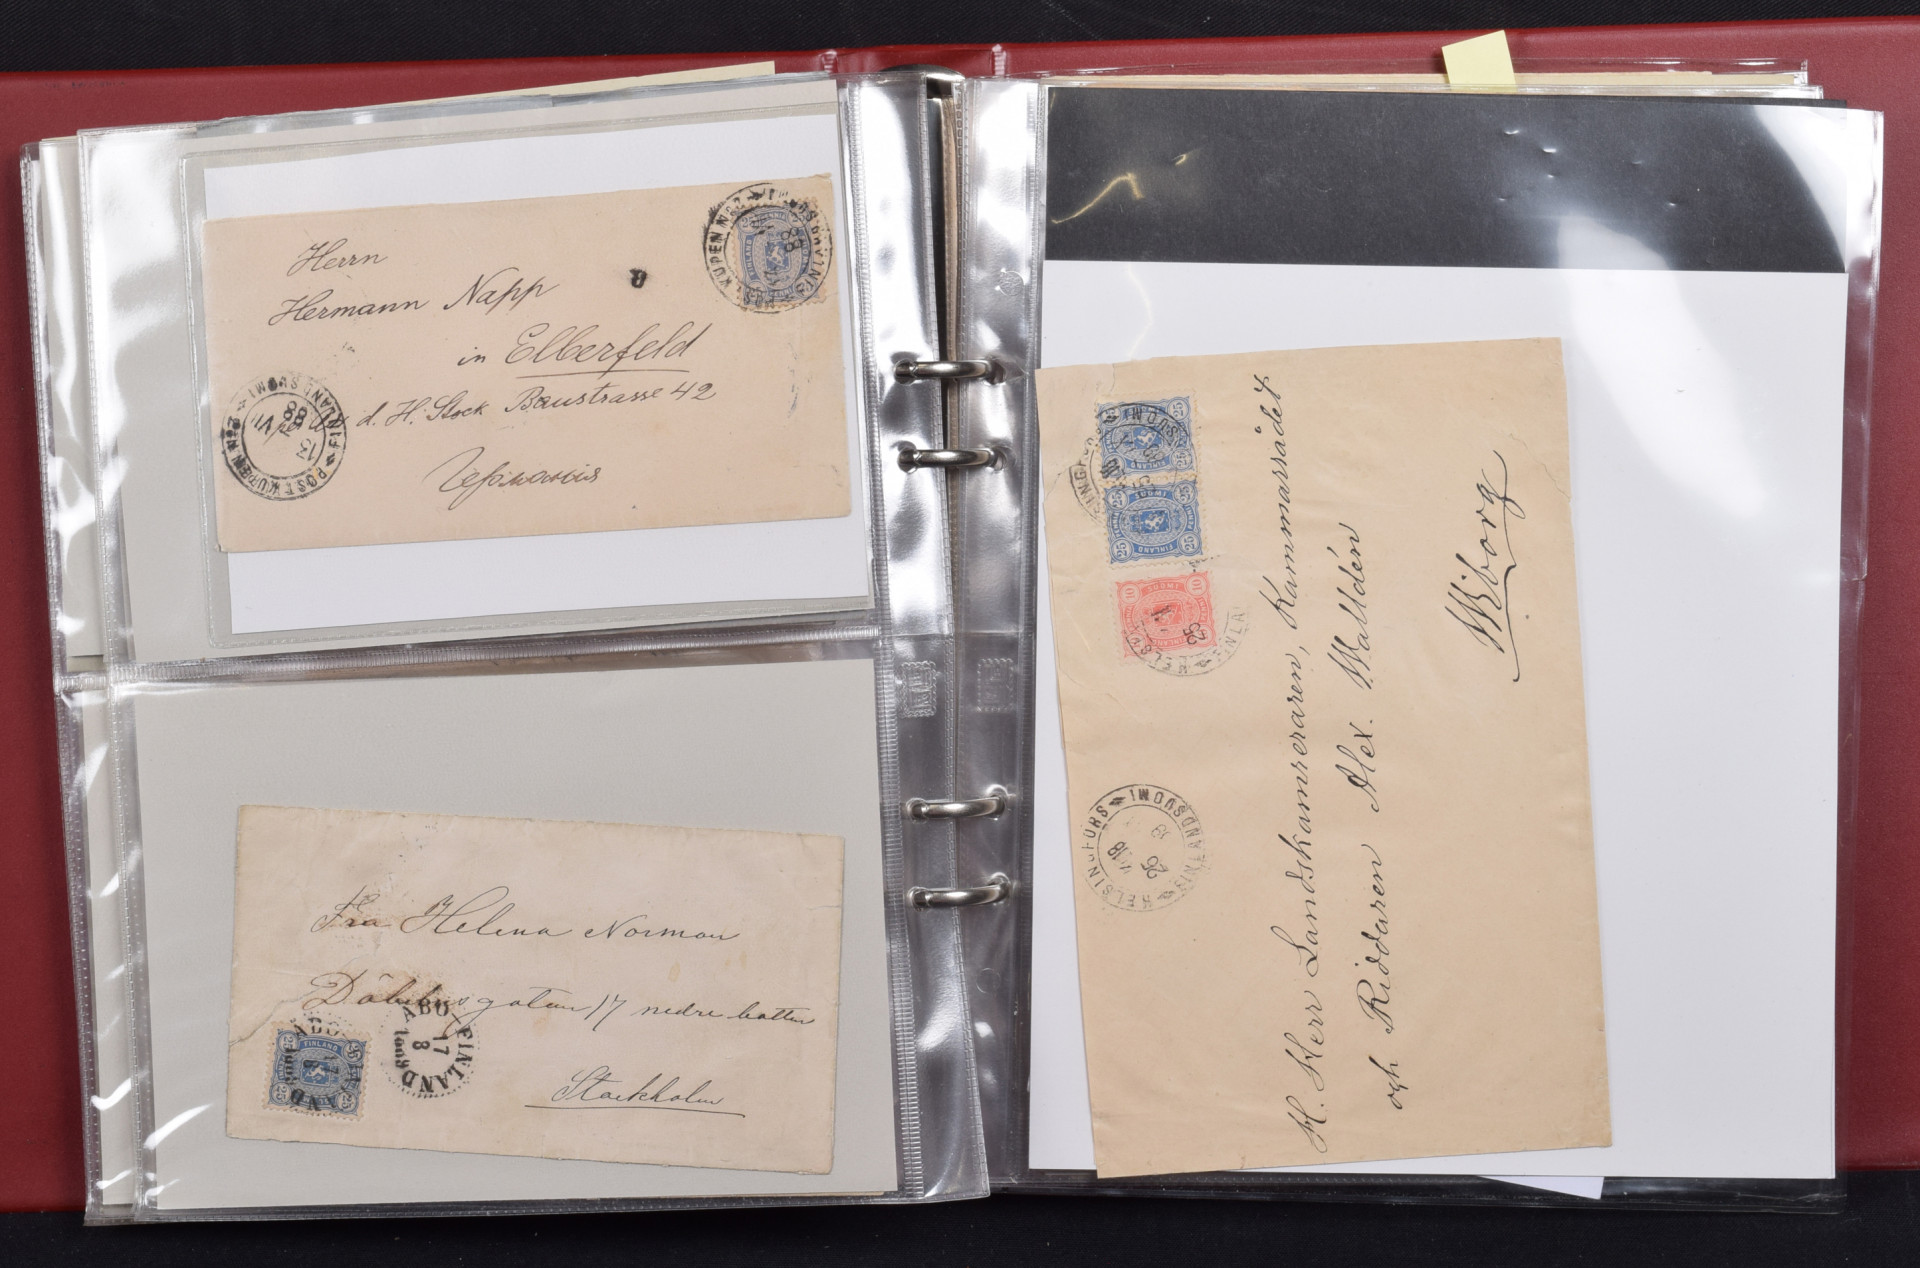 Herrn
Hermann Napp
in Elberfeld
d. H. Stock Baustrasse 42
Германія
R
FINLAND SUOMI
POSTKUPEN No 2
13 VII 88
Helena Norman
17 nedre botten
Stockholm
ÅBO FINLAND
17
8
FINLAND
25
H. Herr Landskamreraren, Kammarrådet
och Riddaren Alex. Walldén
Wiborg
HELSINGFORS
FINLAND SUOMI
25 25
FINLAND
25 25
10 10